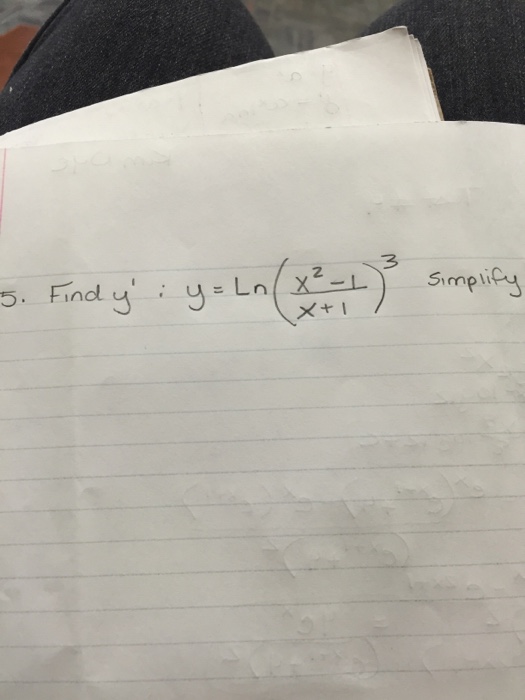 5. Find y' : y = Ln((x² - 1)/(x + 1))³ Simplify